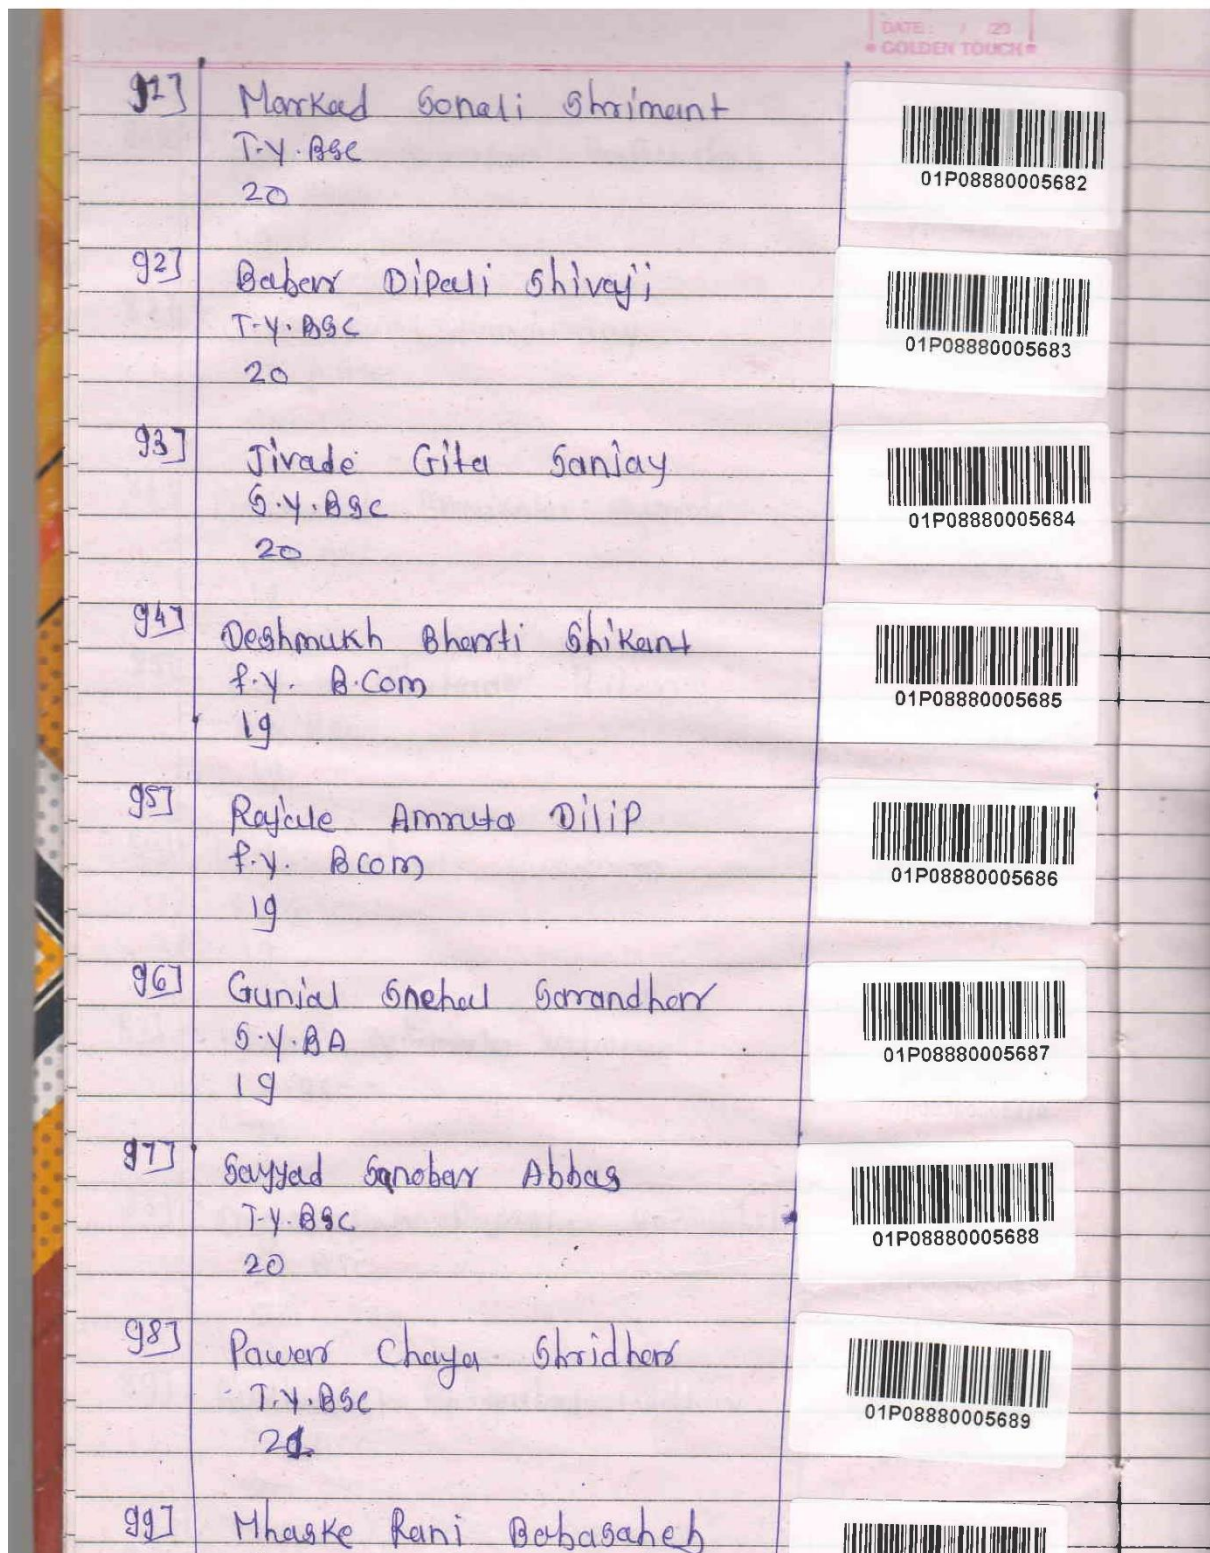 DATE: / /20
GOLDEN TOUCH
91] Markad Sonali Shrimant
T.Y.BSC
20
01P08880005682
92] Babar Dipali Shivaji
T.Y.BSC
20
01P08880005683
93] Jivade Gita Sanjay
S.Y.BSC
20
01P08880005684
94] Deshmukh Bharti Shikant
f.y. B.Com
19
01P08880005685
95] Rajale Amruta Dilip
f.y. BCom
19
01P08880005686
96] Gunjal Snehal Sarandhar
S.Y.BA
19
01P08880005687
97] Sayyad Sanobar Abbas
T.Y.BSC
20
01P08880005688
98] Pawar Chaya Shridhar
T.Y.BSC
21
01P08880005689
99] Mhaske Rani Babasaheb